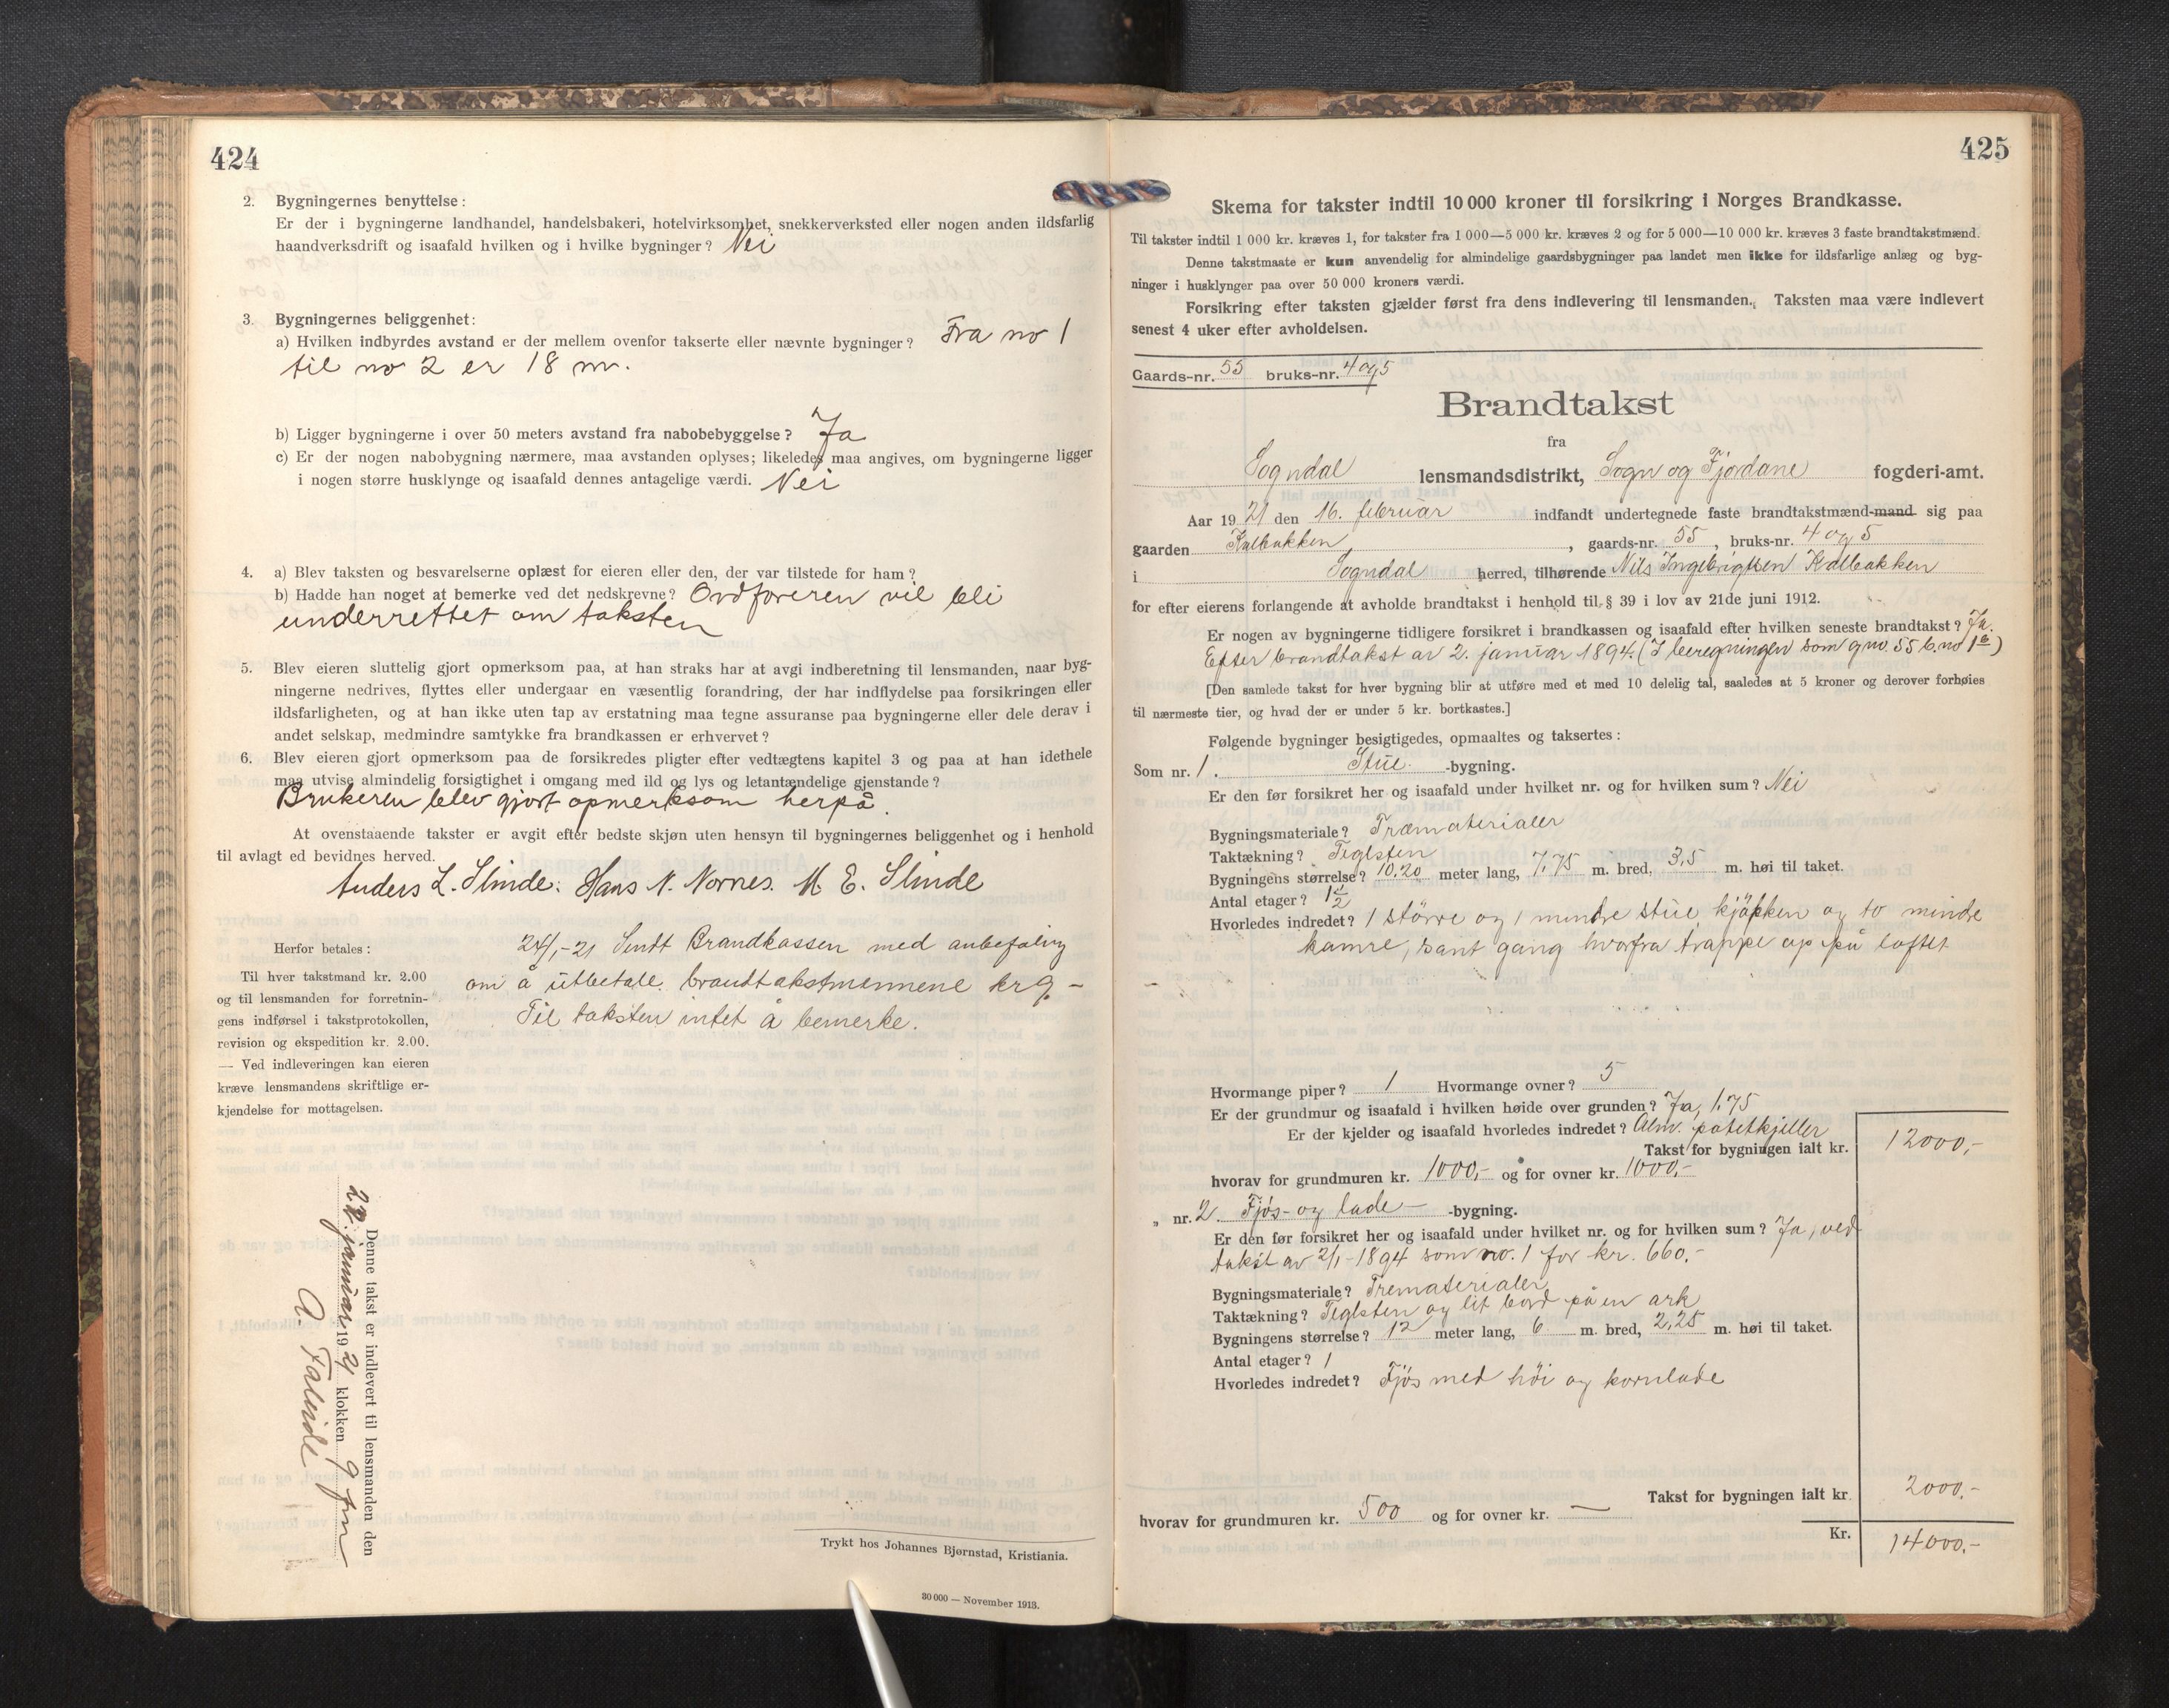 424
2. Bygningernes benyttelse:
Er der i bygningerne landhandel, handelsbakeri, hotelvirksomhet, snekkerverksted eller nogen anden ildsfarlig
haandverksdrift og isaafald hvilken og i hvilke bygninger? Nei
3. Bygningernes beliggenhet:
a) Hvilken indbyrdes avstand er der mellem ovenfor takserte eller nævnte bygninger? Fra no 1
til no 2 er 18 m.
b) Ligger bygningerne i over 50 meters avstand fra nabobebyggelse? Ja
c) Er der nogen nabobygning nærmere, maa avstanden oplyses; likeledes maa angives, om bygningerne ligger
i nogen større husklynge og isaafald dennes antagelige værdi. Nei
4. a) Blev taksten og besvarelserne oplæst for eieren eller den, der var tilstede for ham?
b) Hadde han noget at bemerke ved det nedskrevne? Ordføreren vil bli
underrettet om taksten
5. Blev eieren sluttelig gjort opmerksom paa, at han straks har at avgi indberetning til lensmanden, naar byg-
ningerne nedrives, flyttes eller undergaar en væsentlig forandring, der har indflydelse paa forsikringen eller
ildsfarligheten, og at han ikke uten tap av erstatning maa tegne assuranse paa bygningerne eller dele derav i
andet selskap, medmindre samtykke fra brandkassen er erhvervet?
6. Blev eieren gjort opmerksom paa de forsikredes pligter efter vedtægtens kapitel 3 og paa at han idethele
maa utvise almindelig forsigtighet i omgang med ild og lys og letantændelige gjenstande?
Brukeren blev gjort opmerksom herpå.
At ovenstaaende takster er avgit efter bedste skjøn uten hensyn til bygningernes beliggenhet og i henhold
til avlagt ed bevidnes herved.
Anders L. Slinde. Hans N. Nornes. M. E. Slinde
Herfor betales:
Til hver takstmand kr. 2.00
og til lensmanden for forretnin-
gens indførsel i takstprotokollen,
revision og ekspedition kr. 2.00.
— Ved indleveringen kan eieren
kræve lensmandens skriftlige er-
kjendelse for mottagelsen.
24/1-21 Sendt Brandkassen med anbefaling
om å utbetale brandtakstmennene kr 9.-
Til taksten intet å bemerke.
Denne takst er indlevert til lensmanden den
22. januar 1921 klokken 9 fm
A. Faleide
Trykt hos Johannes Bjørnstad, Kristiania.
30 000 — November 1913.
425
Skema for takster indtil 10 000 kroner til forsikring i Norges Brandkasse.
Til takster indtil 1 000 kr. kræves 1, for takster fra 1 000—5 000 kr. kræves 2 og for 5 000—10 000 kr. kræves 3 faste brandtakstmænd.
Denne takstmaate er kun anvendelig for almindelige gaardsbygninger paa landet men ikke for ildsfarlige anlæg og byg-
ninger i husklynger paa over 50 000 kroners værdi.
Forsikring efter taksten gjælder først fra dens indlevering til lensmanden. Taksten maa være indlevert
senest 4 uker efter avholdelsen.
Gaards-nr. 55 bruks-nr. 4 og 5
Brandtakst
fra
Sogndal lensmandsdistrikt, Sogn og Fjordane fogderi-amt.
Aar 1921 den 16. februar indfandt undertegnede faste brandtakstmænd-mand sig paa
gaarden Kalbakken, gaards-nr. 55, bruks-nr. 4 og 5
i Sogndal herred, tilhørende Nils Ingebrigtsen Kalbakken
for efter eierens forlangende at avholde brandtakst i henhold til § 39 i lov av 21de juni 1912.
Er nogen av bygningerne tidligere forsikret i brandkassen og isaafald efter hvilken seneste brandtakst? Ja.
Efter brandtakst av 2. januar 1894. (I beregningen som gno. 55 b.no 1)
[Den samlede takst for hver bygning blir at utføre med et med 10 delelig tal, saaledes at 5 kroner og derover forhøies
til nærmeste tier, og hvad der er under 5 kr. bortkastes.]
Følgende bygninger besigtigedes, opmaaltes og taksertes:
Som nr. 1. Stue -bygning.
Er den før forsikret her og isaafald under hvilket nr. og for hvilken sum? Nei
Bygningsmateriale? Træmaterialer
Taktækning? Teglsten
Bygningens størrelse? 10.20 meter lang, 7,75 m. bred, 3,5 m. høi til taket.
Antal etager? 1½
Hvorledes indredet? 1 större og 1 mindre stue, kjökken og to mindre
kamre, samt gang hvorfra trappe op på loftet
Hvormange piper? 1 Hvormange ovner? 5
Er der grundmur og isaafald i hvilken høide over grunden? Ja, 1.75
Er der kjelder og isaafald hvorledes indredet? Alm. potetkjeller
Takst for bygningen ialt kr. 12000,-
hvorav for grundmuren kr. 1000,- og for ovner kr. 1000,-
„ nr. 2 Fjøs- og lade- -bygning.
Er den før forsikret her og isaafald under hvilket nr. og for hvilken sum? Ja, ved
takst av 2/1-1894 som no. 1 for kr. 660,-
Bygningsmateriale? Trematerialer
Taktækning? Teglsten og lit bord på en ark
Bygningens størrelse? 12 meter lang, 6 m. bred, 2,25 m. høi til taket.
Antal etager? 1
Hvorledes indredet? Fjös med höi og kornlade
Takst for bygningen ialt kr. 2000.-
hvorav for grundmuren kr. 500 og for ovner kr. —
Kr. 14000.-